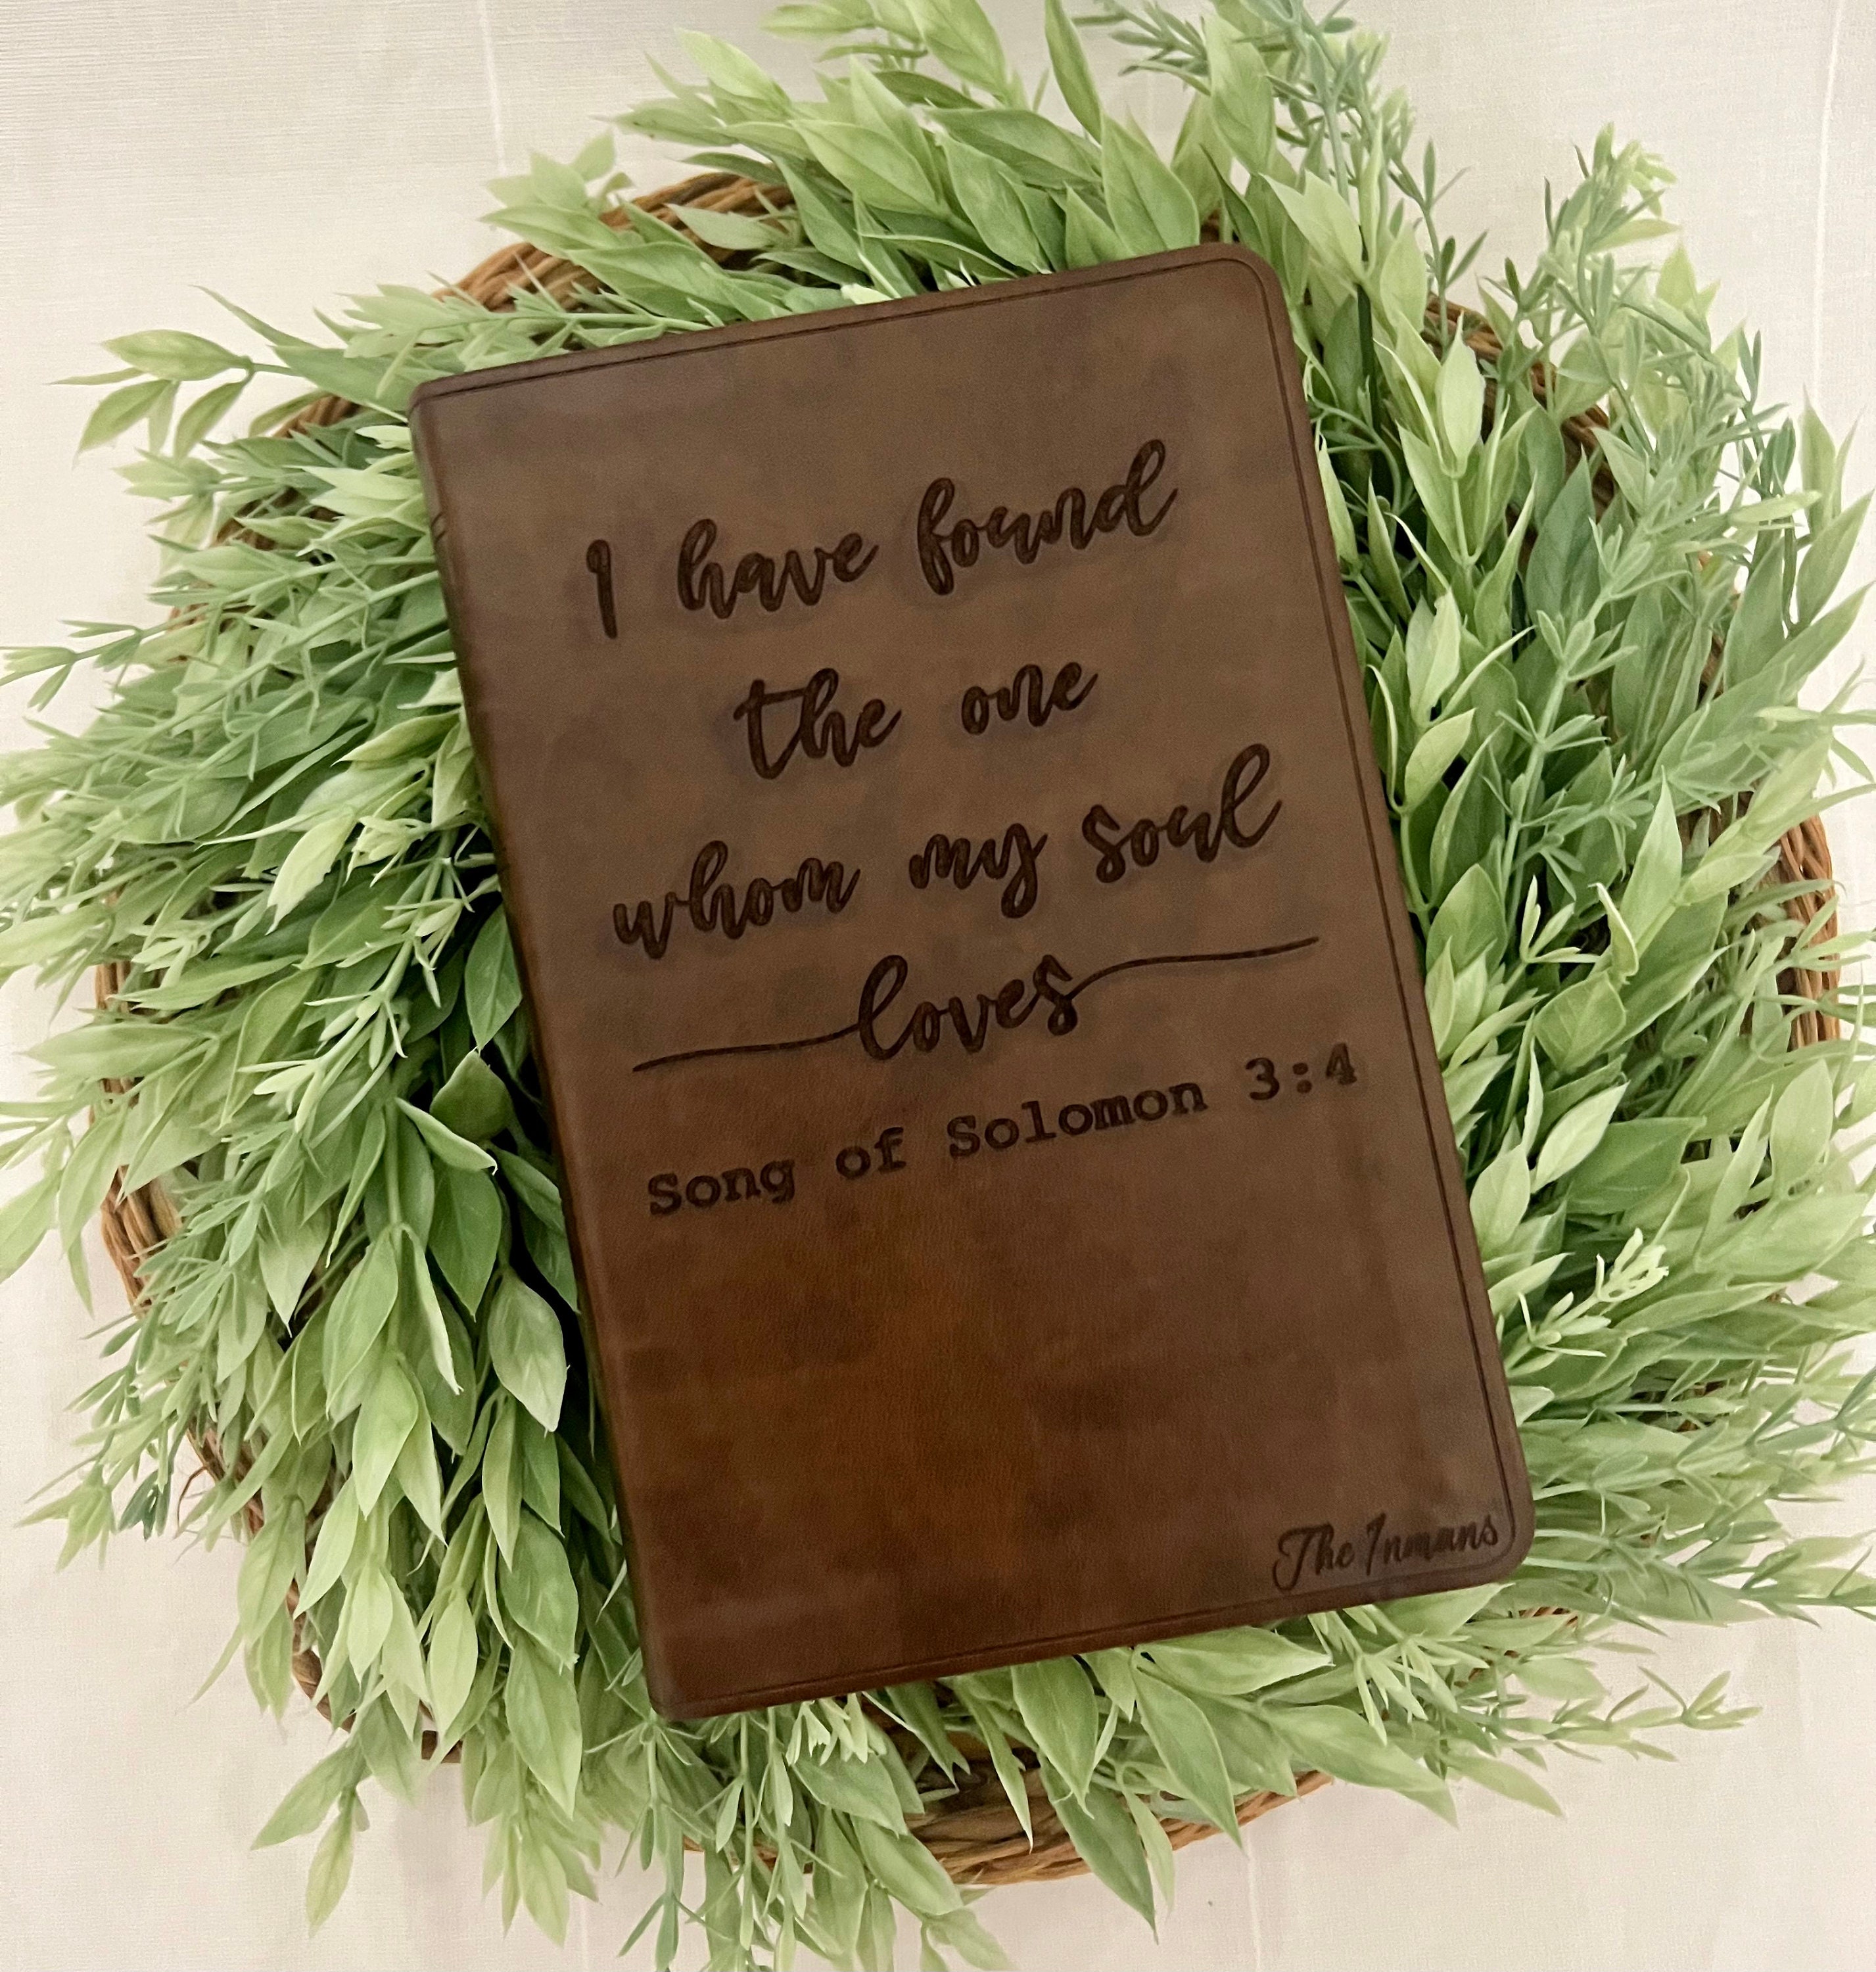 I have found
the one
whom my soul
loves
Song of Solomon 3:4
The Inmans